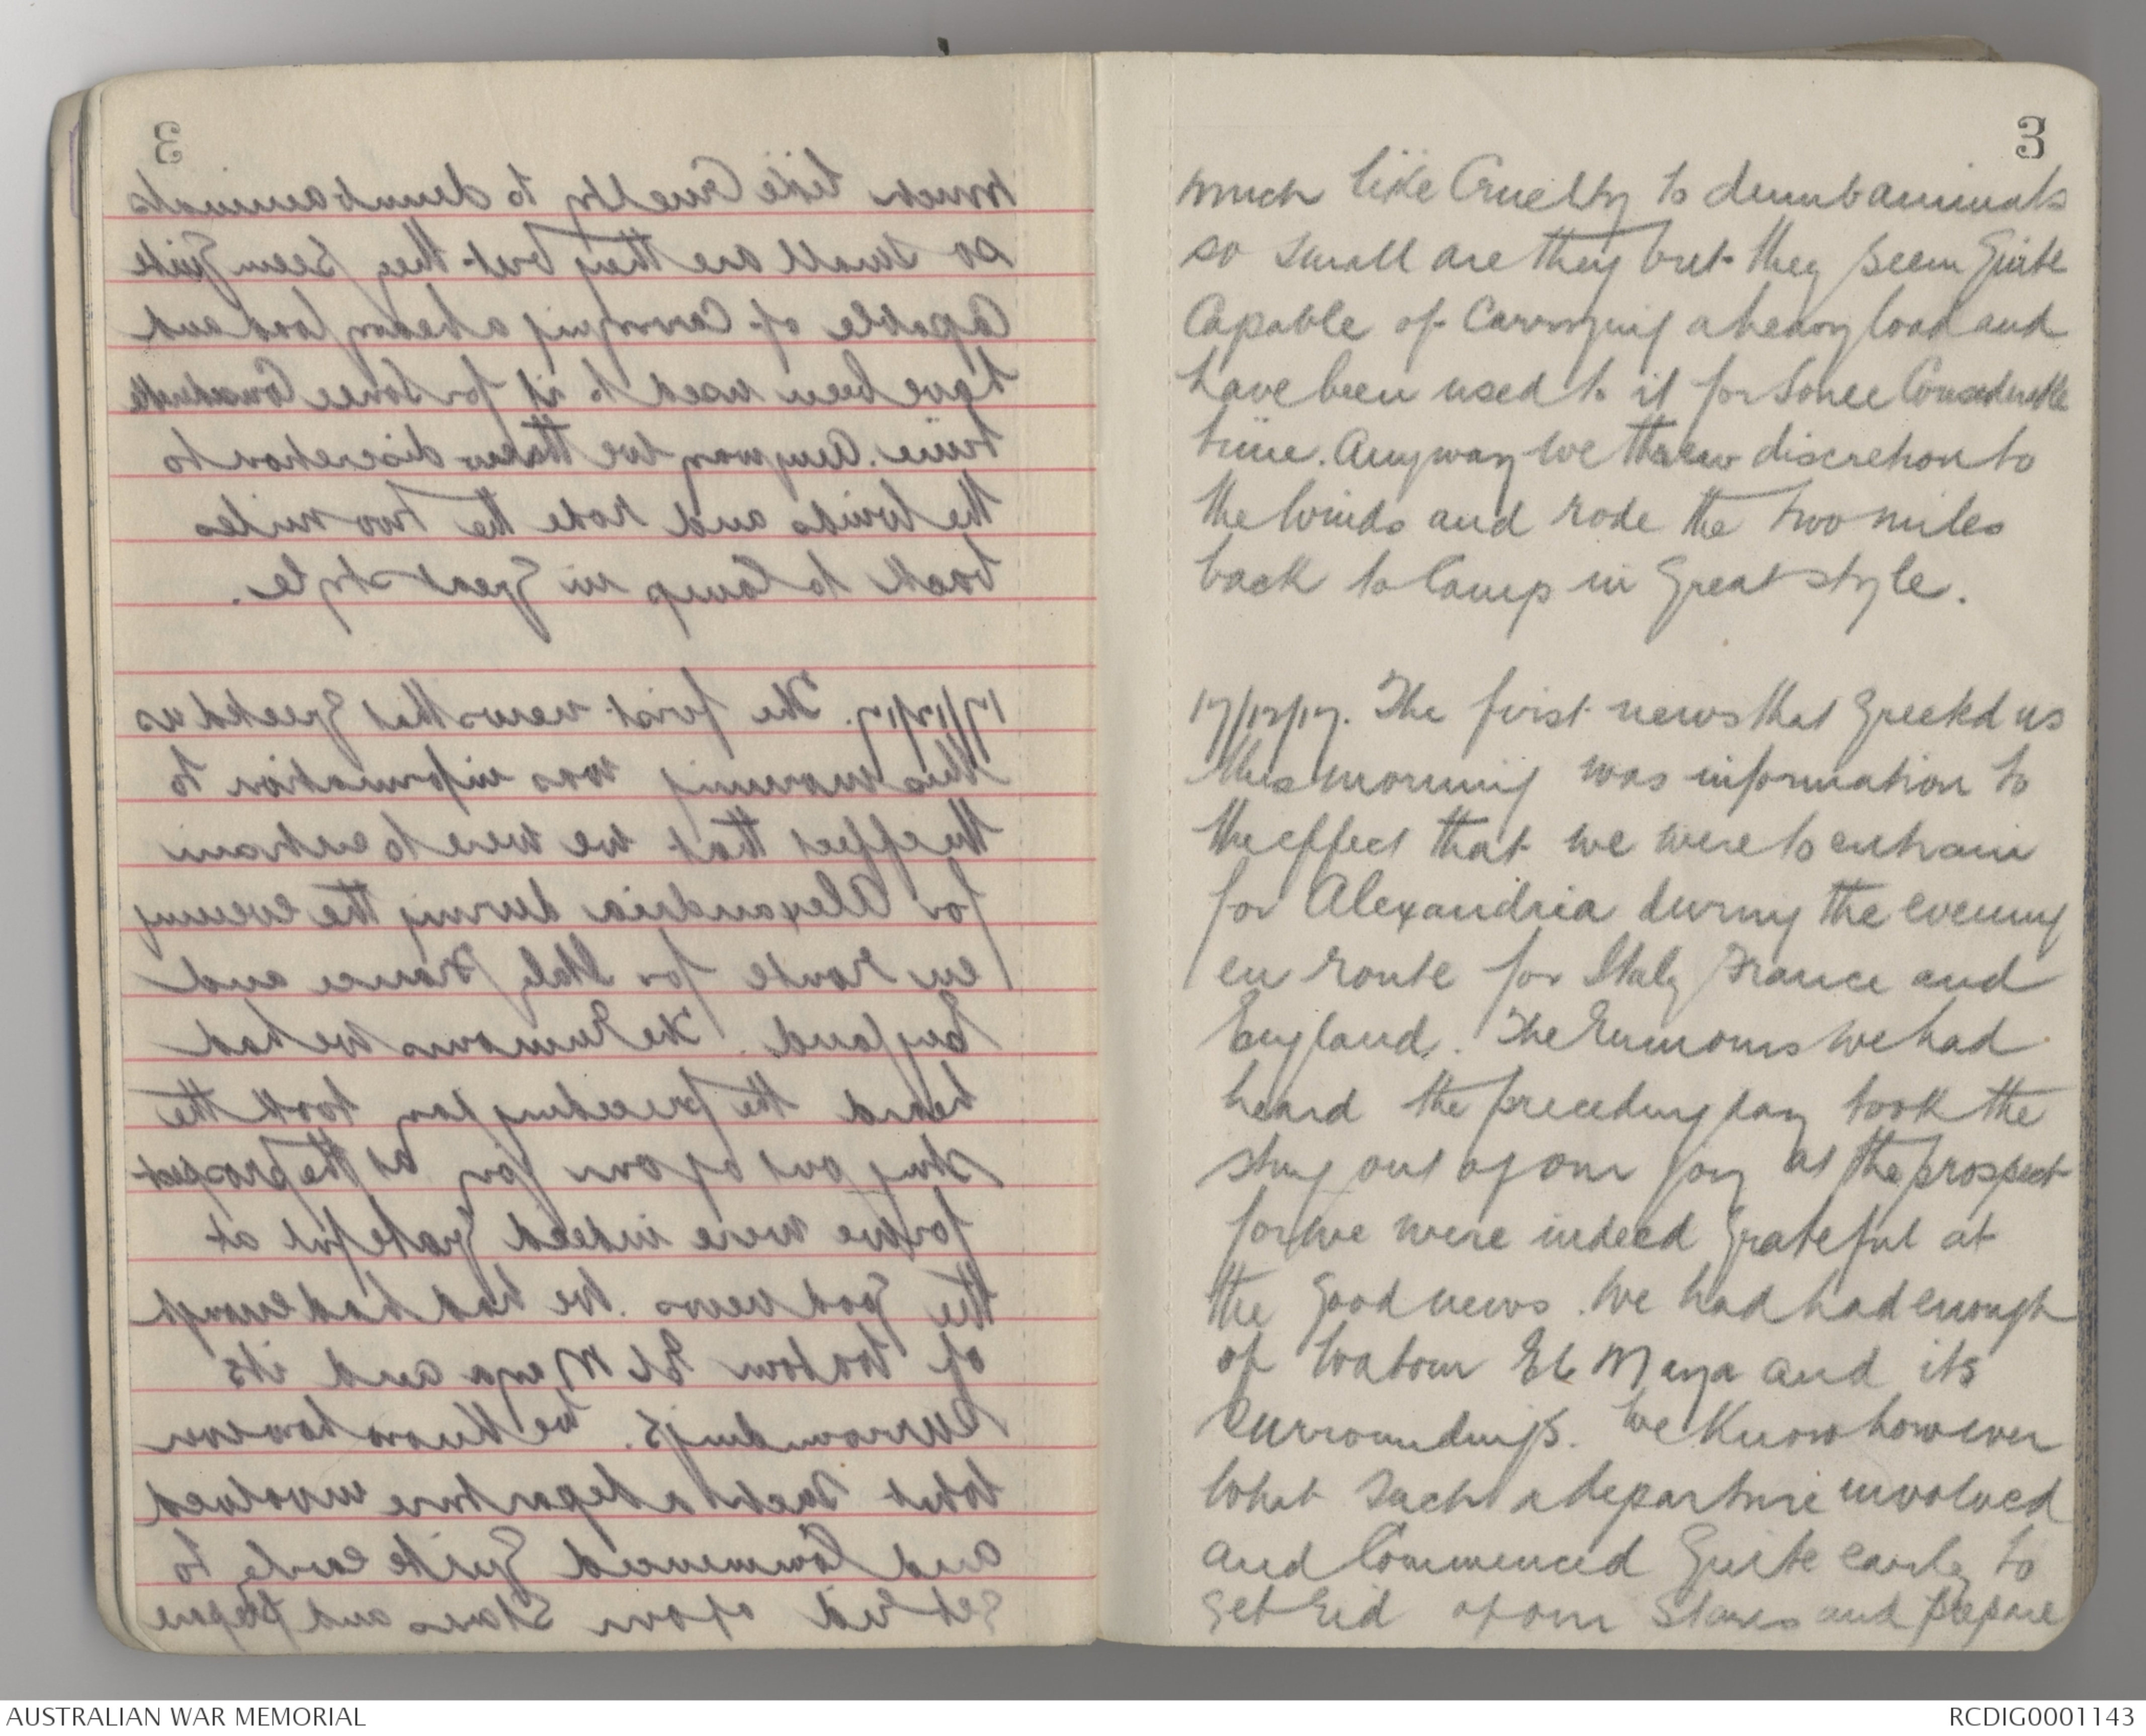 3
much like Cruelty to dumb animals
so small are they but they seem Quite
Capable of Carrying a heavy load and
have been used to it for Some Considerable
time. Anyway we threw discretion to
the Winds and rode the two miles
back to Camp in Great style.
17/12/17. The first news that Greeted us
this morning was information to
the effect that we were to entrain
for Alexandria during the evening
en route for Italy France and
England. The Rumours we had
heard the preceding day took the
sting out of our joy at the prospect
for we were indeed Grateful at
the Good news. We had had enough
of El Maya and its
Surroundings. We Know however
What Such a departure involved
and Commenced Quite early to
Get Rid of our Stores and prepare
AUSTRALIAN WAR MEMORIAL
RCDIG0001143